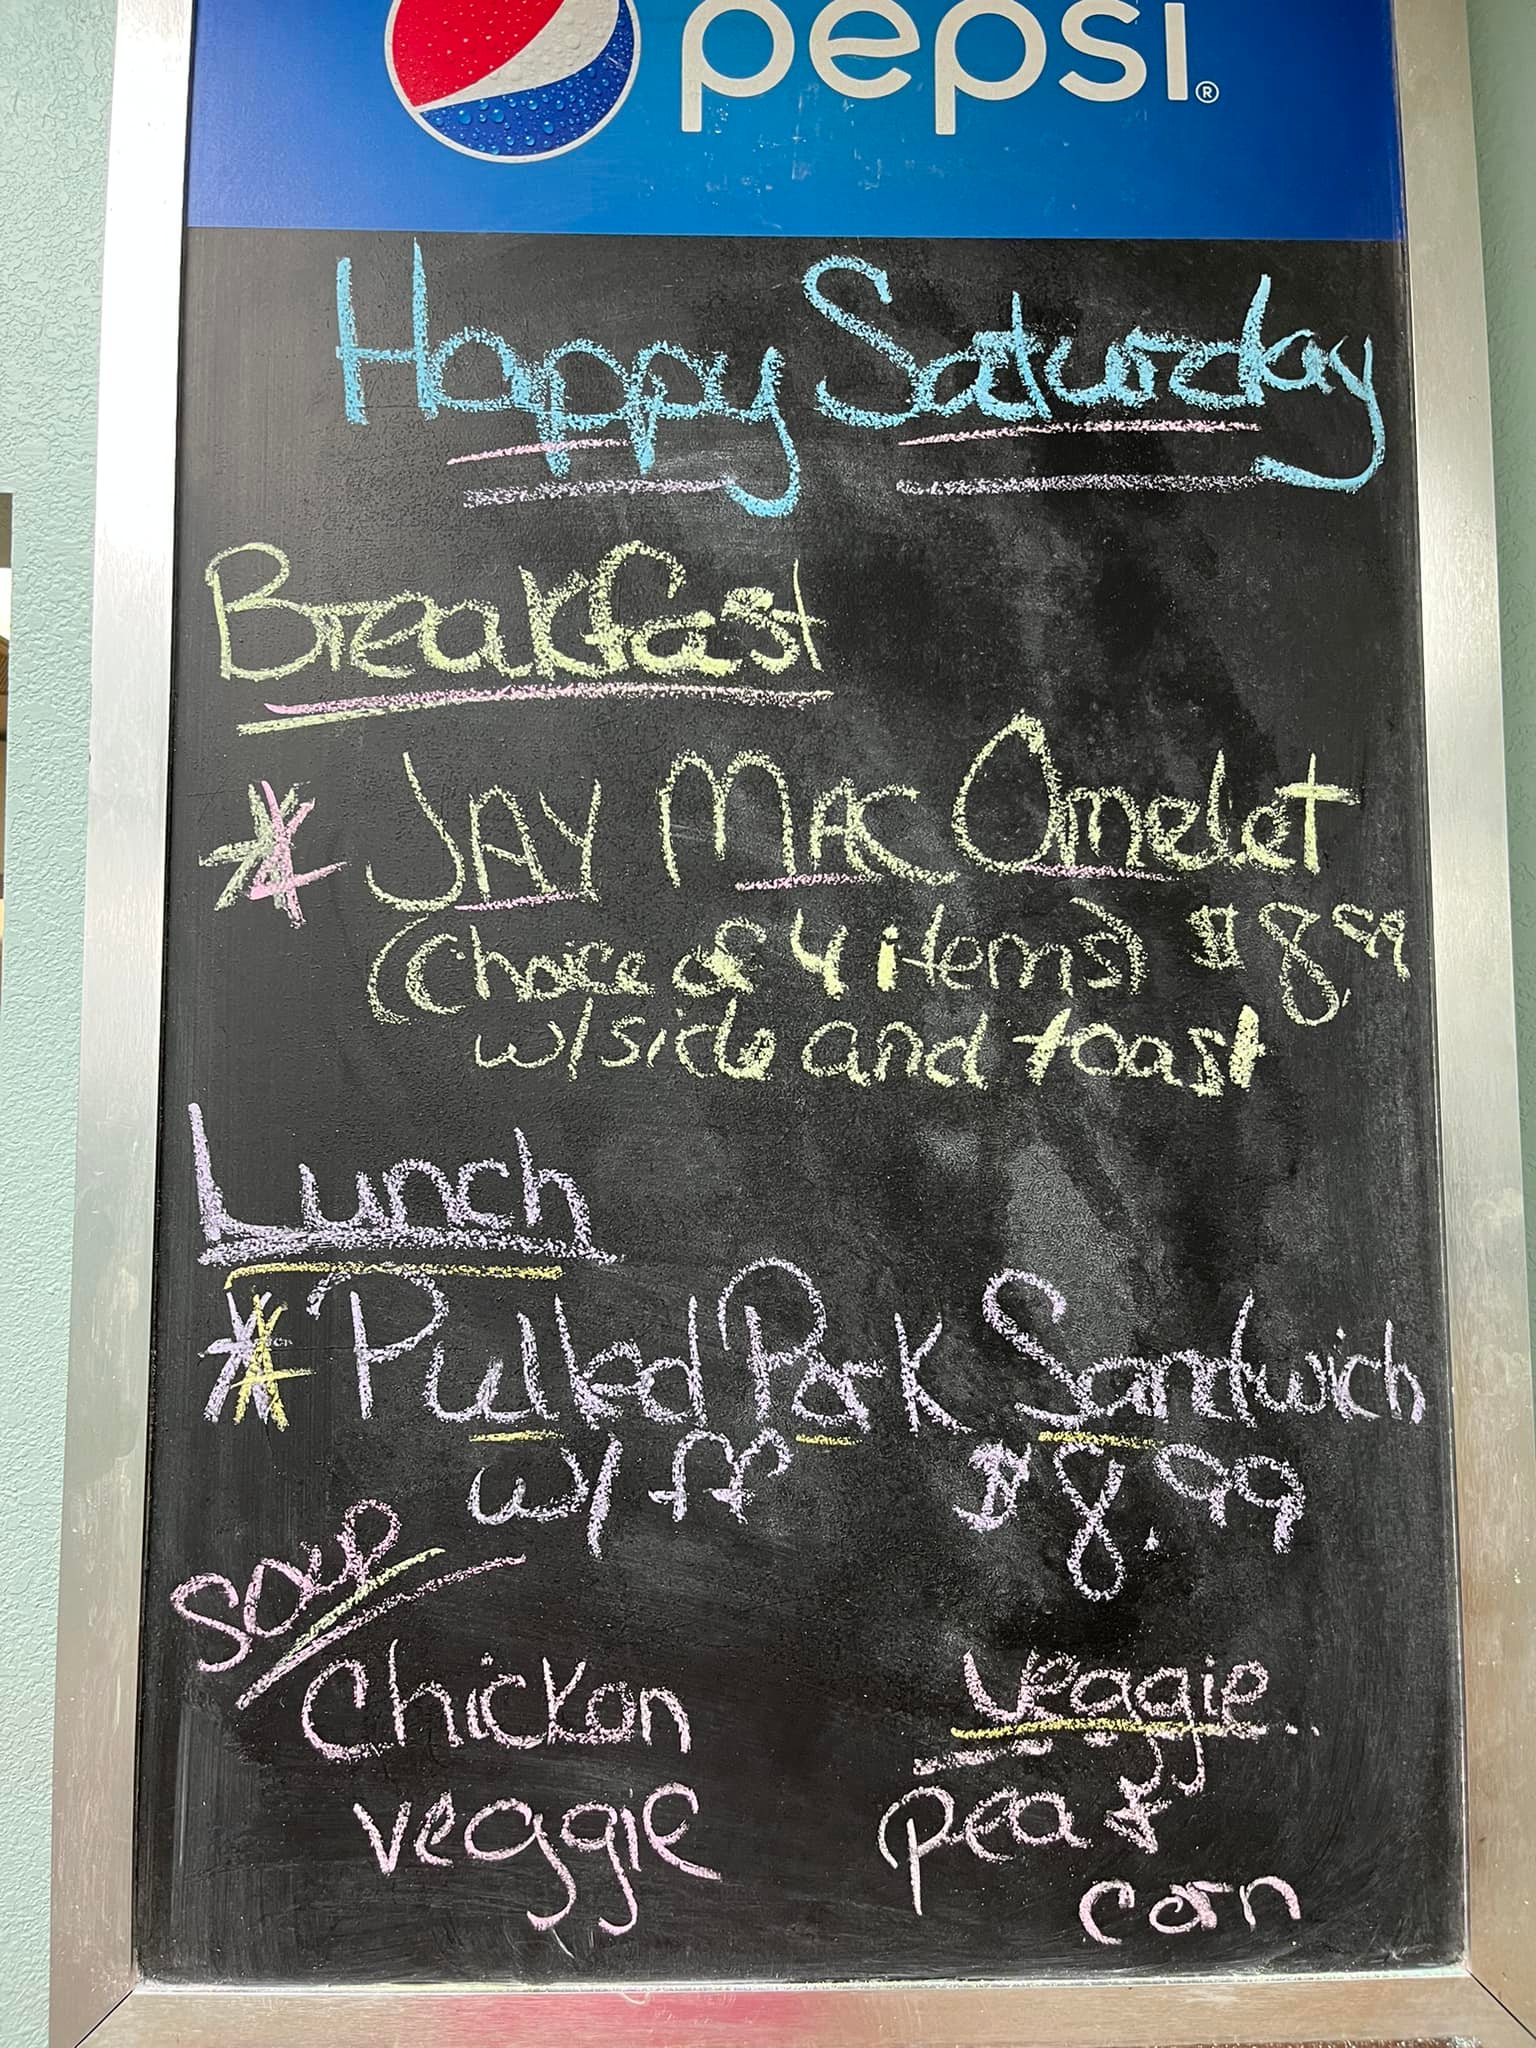 pepsi®
Happy Saturday
Breakfast
* JAY MAC Omelet
(Choice of 4 items) $8.99
w/side and toast
Lunch
* Pulled Pork Sandwich
w/ ff $8.99
Soup
Chicken
veggie
Veggie
pea &
corn